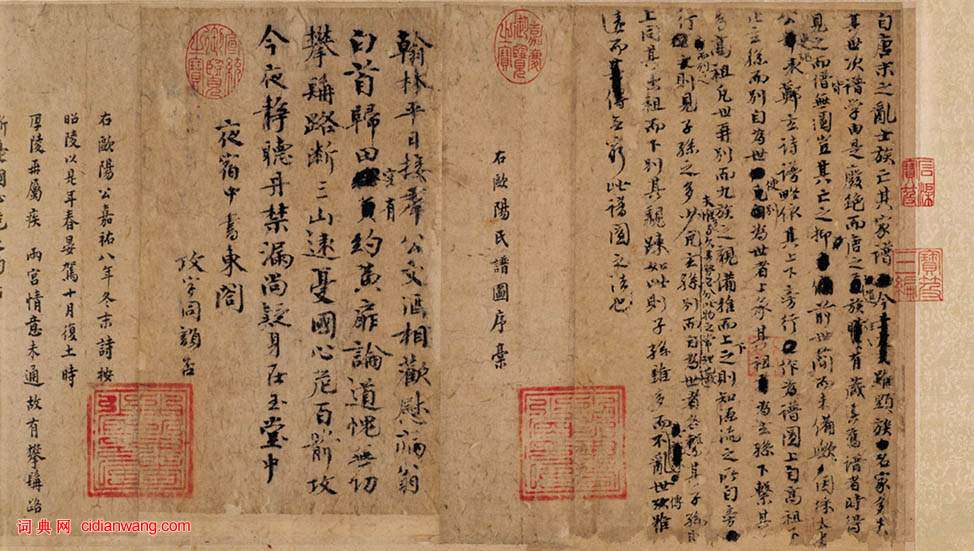 自唐末之亂士族亡其家譜今雖顯族名家多失
其世次譜學由是廢絕而唐之遺族時有藏其舊譜者時得
見之而譜無圖豈其亡之抑前世簡而未備歟因採太史
公史記表鄭玄詩譜略依其上下旁行作為譜圖上自高祖下
止玄孫而別自為世使別為世者上承其祖為玄孫下繫其
孫為高祖凡世再別而九族之親備推而上之則知源流之所自旁
行而列之則見子孫之多少夫惟多與久其勢必分此物之常理也凡玄孫別而自為世者各繫其子孫
上同其出祖而下別其親疎如此則子孫雖多而不亂世傳雖
遠而無窮此譜圖之法也
右歐陽氏譜圖序稾
嘉慶御覽之寶
石渠寶笈
寶笈三編
翰林平日接羣公文酒相歡慰病翁
白首歸田空有約黃扉論道愧無功
攀髯路斷三山遠憂國心危百箭攻
今夜靜聽丹禁漏尚疑身在玉堂中
夜宿中書東閣
攻字同韻否
宣統御覽之寶
右歐陽公嘉祐八年冬末詩按
昭陵以是年春晏駕十月復土時
厚陵再屬疾 兩宮情意未通故有攀髯路
词典网 cidianwang.com